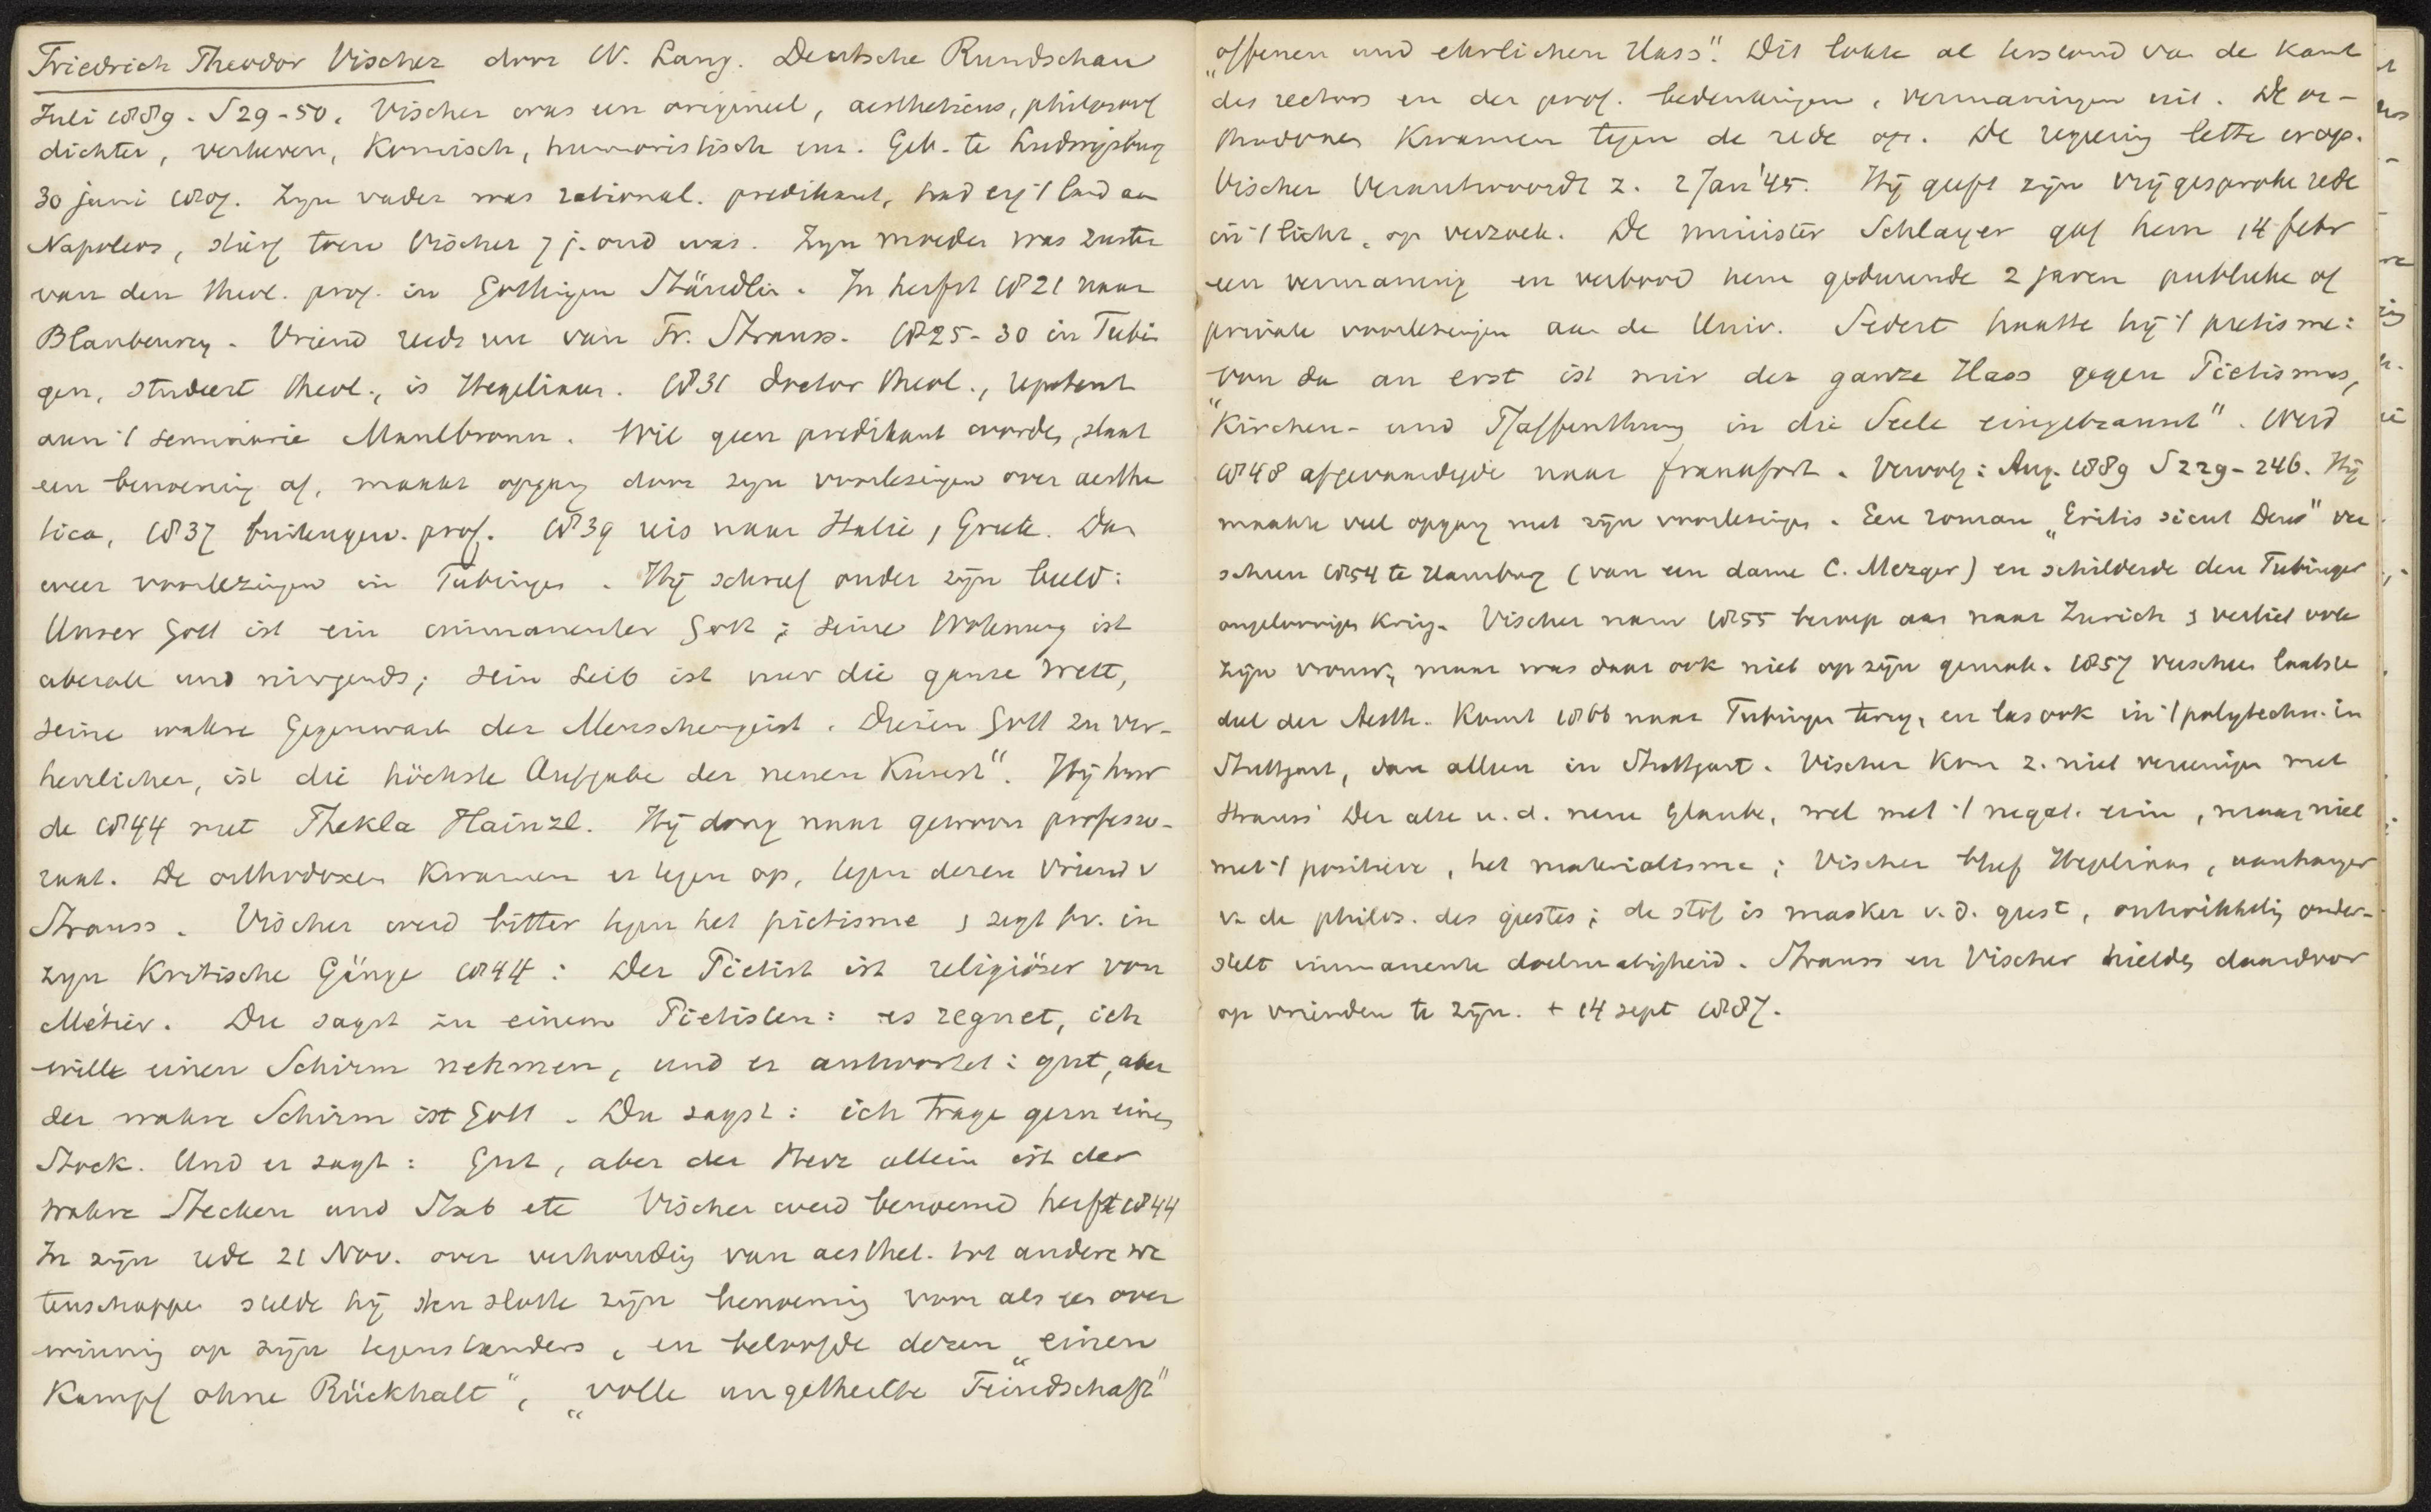 Friedrich Theodor Vischer door W. Lang. Deutsche Rundschau
Juli 1889. S 29-50. Vischer was een origineel, aestheticus, philosoof
dichter, verheven, komisch, humoristisch enz. Geb. te Ludwigsburg
30 juni 1807. Zijn vader was rational. predikant, had erg 't land aan
Napoleon, stierf toen Vischer 7 j. oud was. Zijn moeder was zuster
van den theol. prof. in Gottingen Stäudlin. In herfst 1821 naar
Blaubeuren. Vriend reeds nu van Fr. Strauss. 1825-30 in Tubin
gen, studeert theol., is Hegeliaan. 1831 doctor theol., repetent
aan 't seminarie Maulbronn. Wil geen predikant worden, slaat
een benoeming af, maakt opgang door zijn voorlezingen over aesthe
tica, 1837 buitengew. prof. 1839 reis naar Italie, Griek. Dan
weer voorlezingen in Tubingen. Hij schreef onder zijn beeld:
Unser Gott ist ein immanenter Gott; seine Wohnung ist
uberall und nirgends; sein Leib ist nur die ganze Welt,
seine wahre Gegenwart der Menschengeist. Diesen Gott zu ver-
herrlichen, ist die höchste Aufgabe der neuen Kunst". Hij huw
de 1844 met Thekla Hainzl. Hij dong naar gewoon professo-
raat. De orthodoxen kwamen er tegen op, tegen dezen vriend v
Strauss. Vischer werd bitter tegen het pietisme, zegt bv. in
zijn Kritische Gänge 1844: Der Pietist ist religiöser von
Métier. Du sagst zu einem Pietisten: es regnet, ich
wille einen Schirm nehmen, und er antwortet: gut, aber
der wahre Schirm ist Gott. Du sagst: ich trage gern einen
Stock. Und er sagt: Gut, aber der Herr allein ist der
wahre Stecken und Stab etc Vischer werd benoemd herfst 1844
In zijn rede 21 Nov. over verhouding van aesthet. tot andere we
tenschappen stelde hij ten slotte zijn benoeming voor als een over
winning op zijn tegenstanders, en beloofde dezen „einen
Kampf ohne Rückhalt", „volle ungetheilte Feindschaft"
„offenen und ehrlichen Hass". Dit lokte al terstond van de kant
des rectors en der prof. bedenkingen, vermaningen uit. De or-
thodoxen kwamen tegen de rede op. De regering lette erop.
Vischer verantwoordt z. 2 Jan '45. Hij geeft zijn vrij gesproken rede
in 't licht, op verzoek. De minister Schlayer gaf hem 14 febr
een vermaning en verbood hem gedurende 2 jaren publieke of
private voorlezingen aan de Univ. Sedert haatte hij 't pietisme:
„von da an erst ist mir der ganze Hass gegen Pietismus,
Kirchen- und Pfaffenthum in die Seele eingebrannt". Werd
1848 afgevaardigde naar Frankfort. Vervolg: Aug. 1889 S 229-246. Hij
maakte veel opgang met zijn voorlezingen. Een roman „Eritis sicut Deus" ver
scheen 1854 te Hamburg (van een dame C. Mezger) en schilderde den Tubinger
ongeloovigen kring. Vischer nam 1855 beroep aan naar Zurich, verliet ook
zijn vrouw, maar was daar ook niet op zijn gemak. 1857 verscheen laatste
deel der Aesth. Komt 1866 naar Tubingen terug, en las ook in 't polytechn. in
Stuttgart, dan alleen in Stuttgart. Vischer kon z. niet vereenigen met
Strauss' Der alte u. d. neue Glaube, wel met 't negat. erin, maar niet
met 't positieve, het materialisme; Vischer bleef Hegeliaan, aanhanger
v. de philos. des geestes; de stof is masker v. d. geest, ontwikkeling onder-
stelt immanente doelmatigheid. Strauss en Vischer hielden daardoor
op vrienden te zijn. + 14 sept 1887.